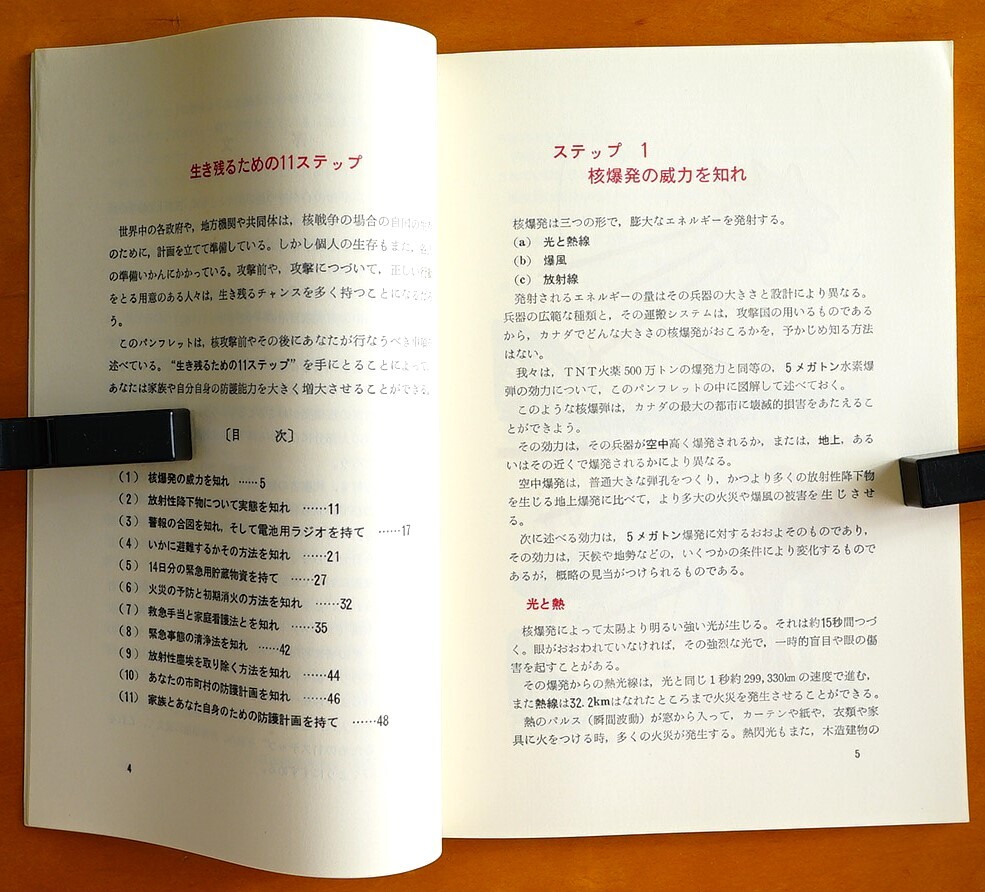 生き残るための11ステップ
世界中の各政府や，地方機関や共同体は，核戦争の場合の自国の
のために，計画を立てて準備している。しかし個人の生存もまた，
の準備いかんにかかっている。攻撃前や，攻撃につづいて，正しい行
をとる用意のある人々は，生き残るチャンスを多く持つことになるだ
う。
このパンフレットは，核攻撃前やその後にあなたが行なうべき事
述べている。“生き残るための11ステップ”を手にとることによって，
あなたは家族や自分自身の防護能力を大きく増大させることができる。
〔目　　次〕
(1) 核爆発の威力を知れ ……5
(2) 放射性降下物について実態を知れ ……11
(3) 警報の合図を知れ，そして電池用ラジオを持て ……17
(4) いかに避難するかその方法を知れ ……21
(5) 14日分の緊急用貯蔵物資を持て ……27
(6) 火災の予防と初期消火の方法を知れ ……32
(7) 救急手当と家庭看護法とを知れ ……35
(8) 緊急事態の清浄法を知れ ……42
(9) 放射性塵埃を取り除く方法を知れ ……44
(10) あなたの市町村の防護計画を知れ ……46
(11) 家族とあなた自身のための防護計画を持て ……48
4
ステップ　1
核爆発の威力を知れ
核爆発は三つの形で，膨大なエネルギーを発射する。
(a) 光と熱線
(b) 爆風
(c) 放射線
発射されるエネルギーの量はその兵器の大きさと設計により異なる。
兵器の広範な種類と，その運搬システムは，攻撃国の用いるものである
から，カナダでどんな大きさの核爆発がおこるかを，予かじめ知る方法
はない。
我々は，TNT火薬500万トンの爆発力と同等の，5メガトン水素爆
弾の効力について，このパンフレットの中に図解して述べておく。
このような核爆弾は，カナダの最大の都市に壊滅的損害をあたえるこ
とができよう。
その効力は，その兵器が空中高く爆発されるか，または，地上，ある
いはその近くで爆発されるかにより異なる。
空中爆発は，普通大きな弾孔をつくり，かつより多くの放射性降下物
を生じる地上爆発に比べて，より多大の火災や爆風の被害を生じさせ
る。
次に述べる効力は，5メガトン爆発に対するおおよそのものであり，
その効力は，天候や地勢などの，いくつかの条件により変化するもので
あるが，概略の見当がつけられるものである。
光と熱
核爆発によって太陽より明るい強い光が生じる。それは約15秒間つづ
く。眼がおおわれていなければ，その強烈な光で，一時的盲目や眼の傷
害を起すことがある。
その爆発からの熱光線は，光と同じ1秒約299,330kmの速度で進む，
また熱線は32.2kmはなれたところまで火災を発生させることができる。
熱のパルス（瞬間波動）が窓から入って，カーテンや紙や，衣類や家
具に火をつける時，多くの火災が発生する。熱閃光もまた，木造建物の
5